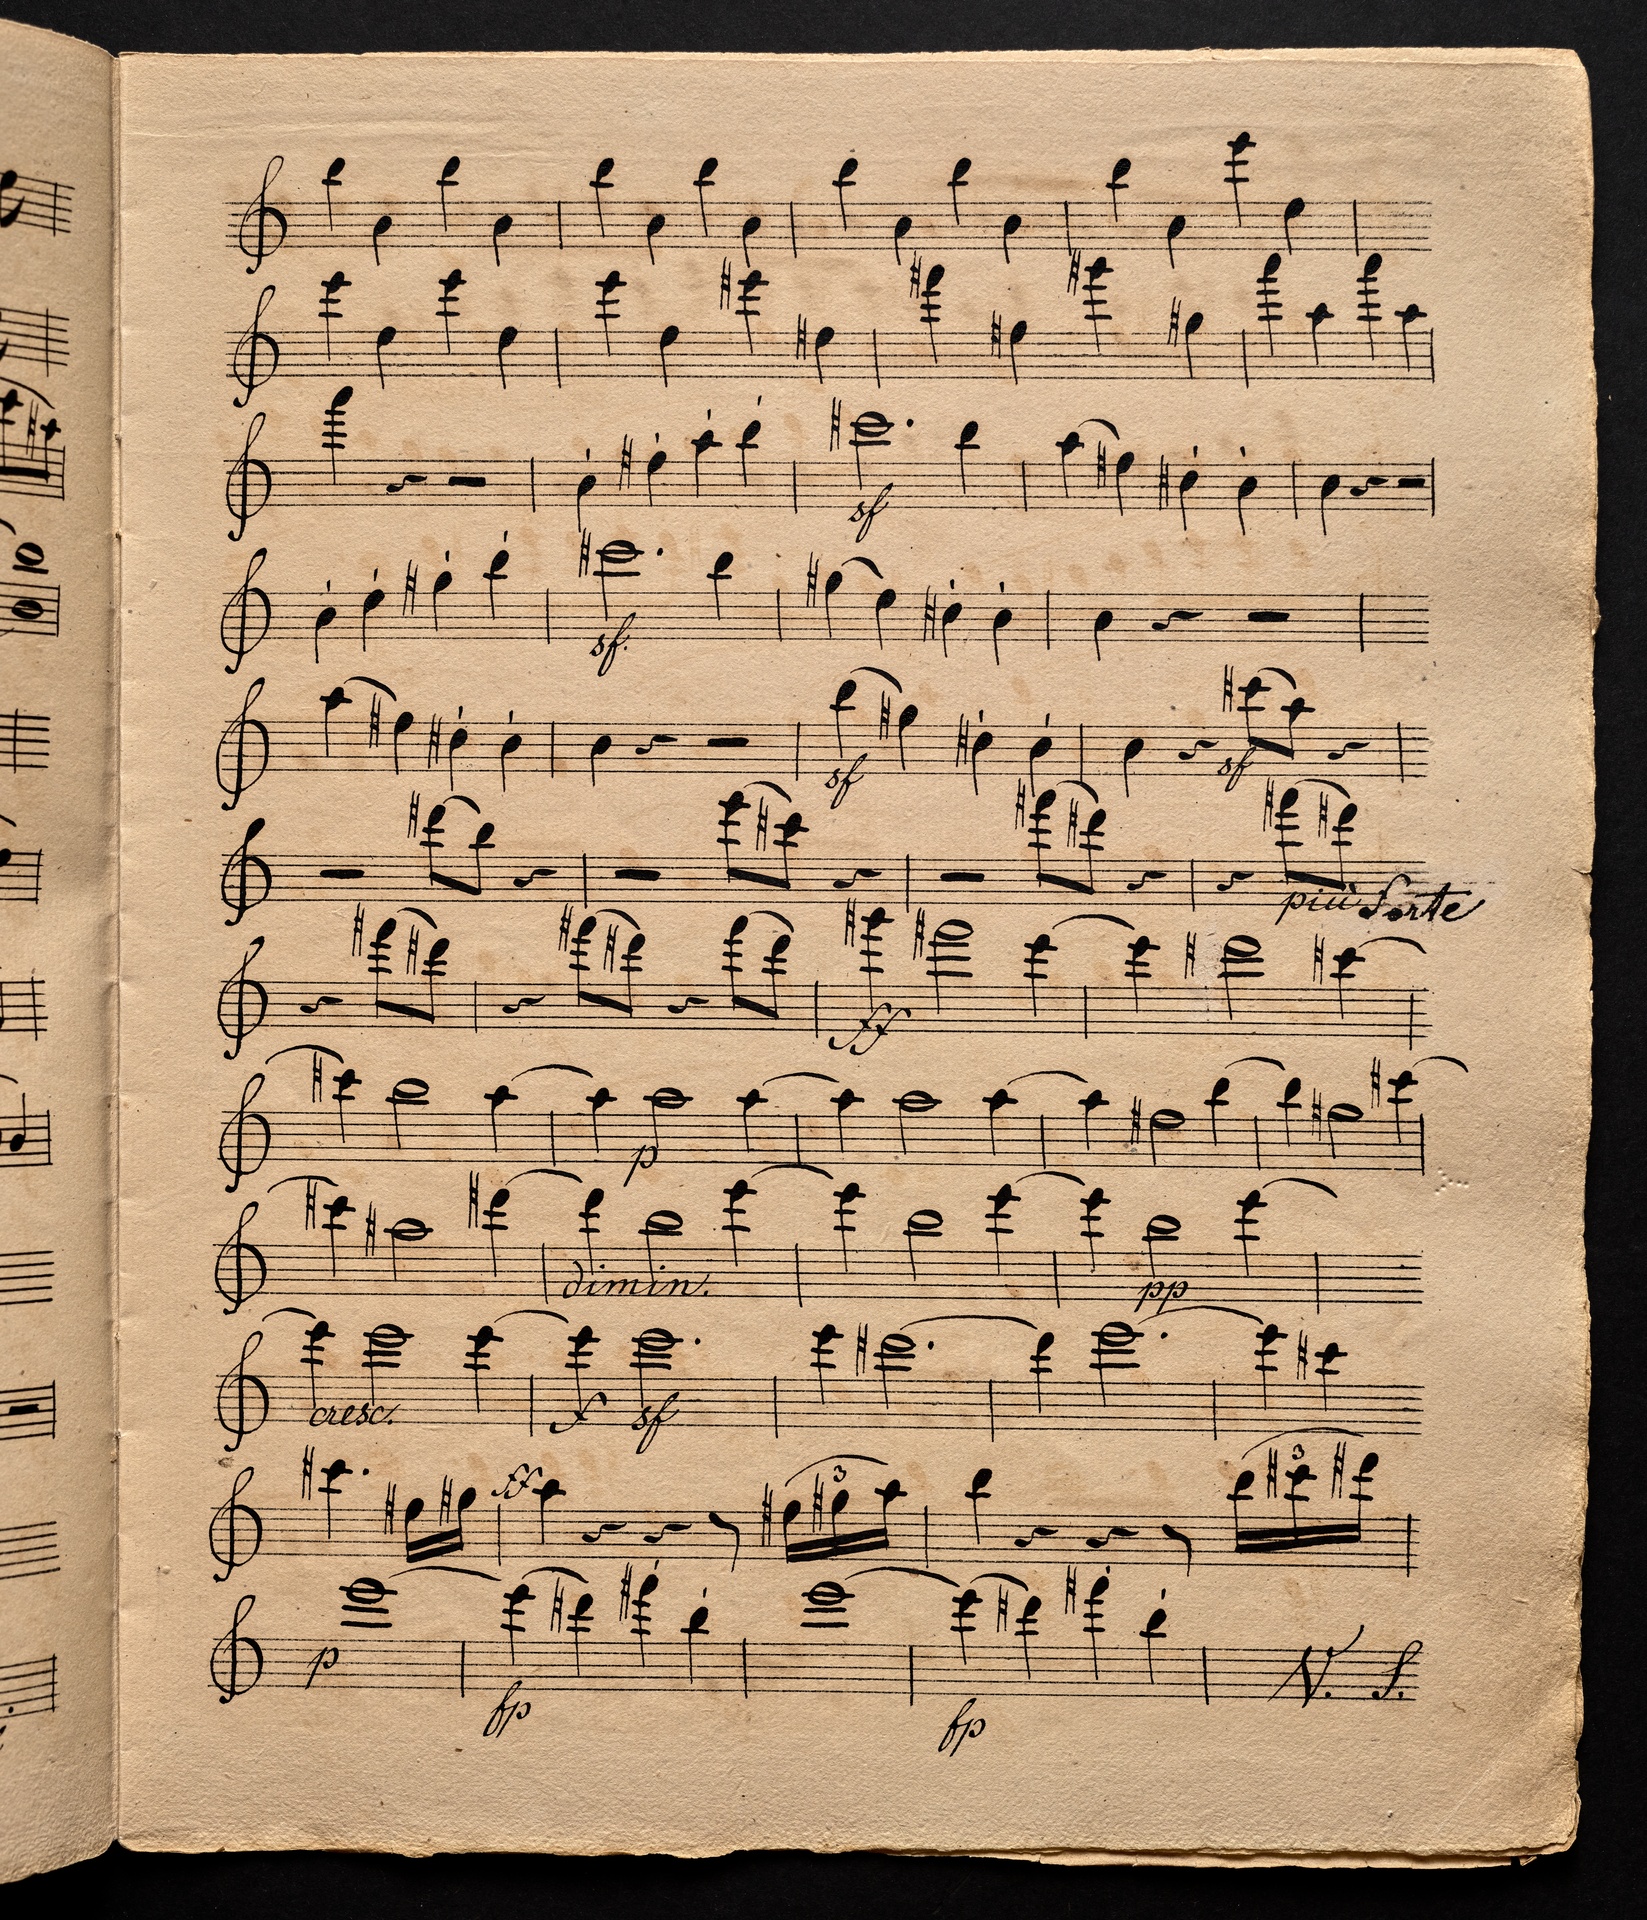 sf
sf.
sf sf
più forte
ff
p
dimin. pp
cresc. f sf
ff 3 3
p
fp fp
V. S.